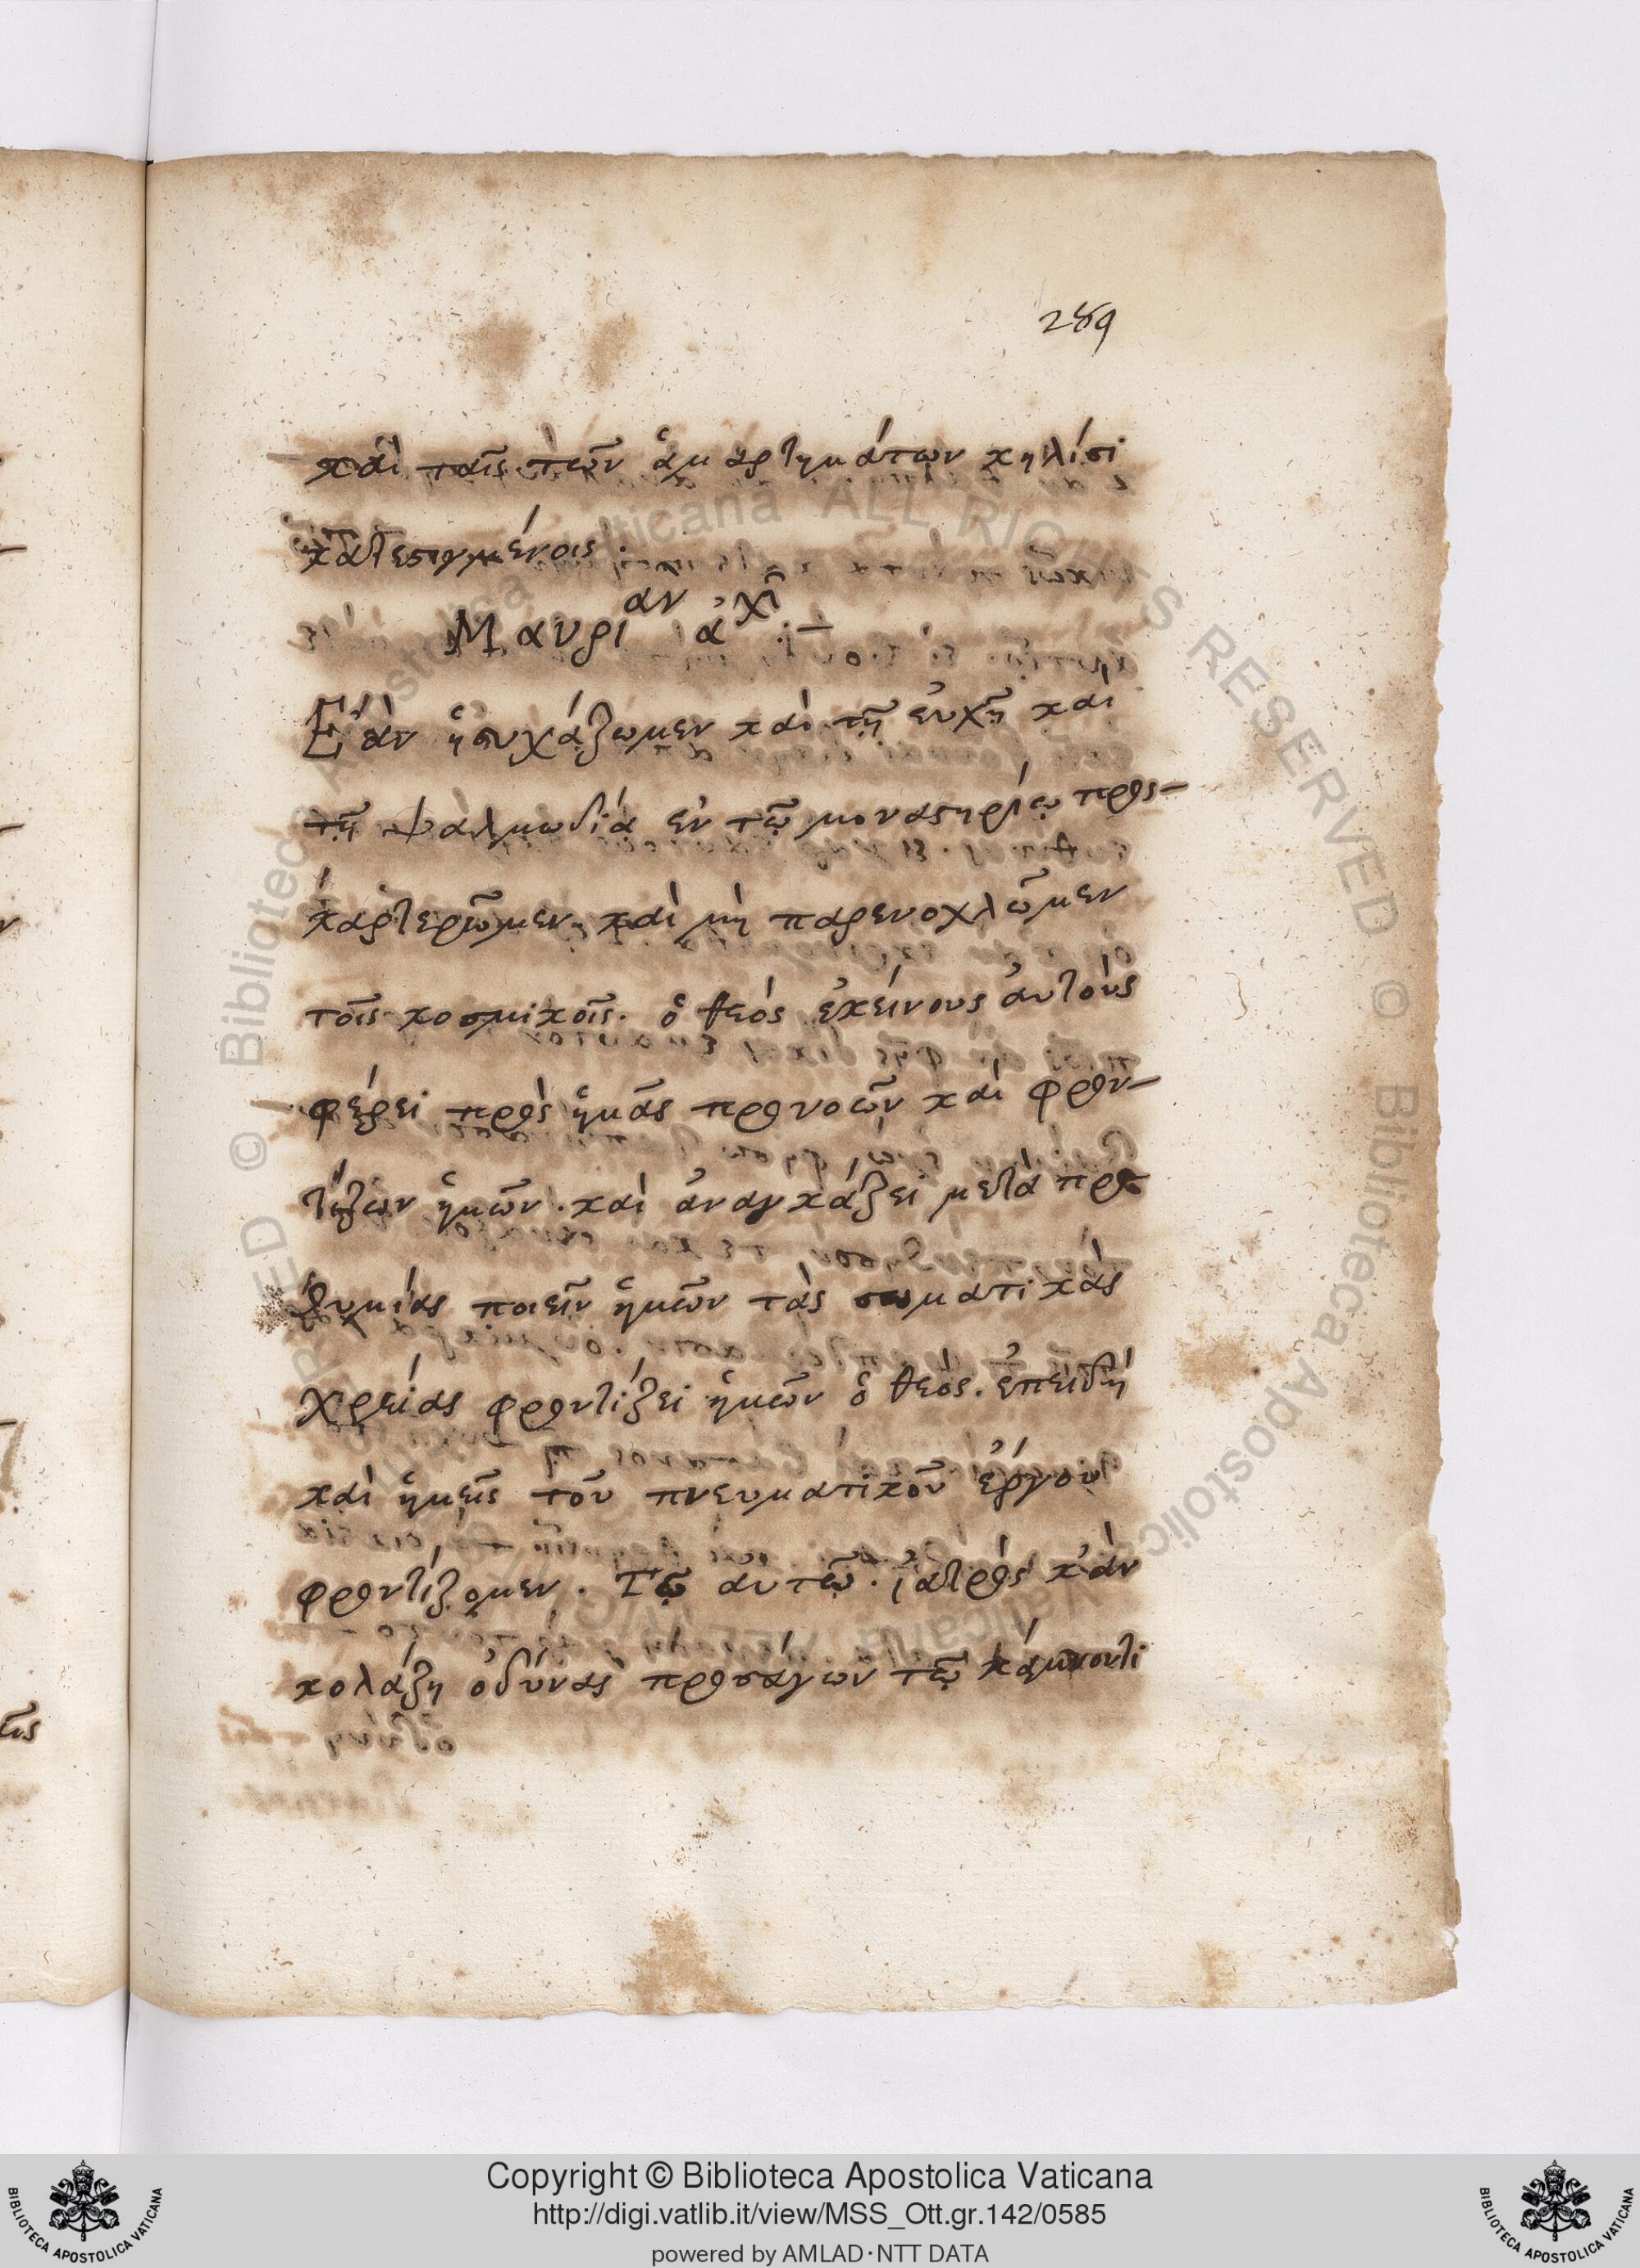 289
καὶ ταῖς τῶν ἁμαρτημάτων κηλίσι
κατεστιγμένοις.
Μαυριαν ἀχι :—
Ἐὰν ἡσυχάζωμεν καὶ τῇ εὐχῇ καὶ
τῇ ψαλμωδίᾳ ἐν τῷ μοναστηρίῳ προς-
καρτερῶμεν καὶ μὴ παρενοχλῶμεν
τοῖς κοσμικοῖς. ὁ θεὸς ἐκείνους αὐτοὺς
φέρει πρὸς ἡμᾶς προνοῶν καὶ φρον-
τίζων ἡμῶν. καὶ ἀναγκάζει μετὰ προ
θυμίας ποιεῖν ἡμῶν τὰς σωματικὰς
χρείας φροντίζει ἡμῶν ὁ θεός. ἐπειδὴ
καὶ ἡμεῖς τοῦ πνευματικοῦ ἔργου
φροντίζομεν. Τῷ αὐτῷ. ἰατρὸς κἂν
κολάζῃ ὀδύνας προσάγων τῷ κάμνοντι
Copyright © Biblioteca Apostolica Vaticana
http://digi.vatlib.it/view/MSS_Ott.gr.142/0585
powered by AMLAD·NTT DATA
BIBLIOTECA APOSTOLICA VATICANA
BIBLIOTECA APOSTOLICA VATICANA